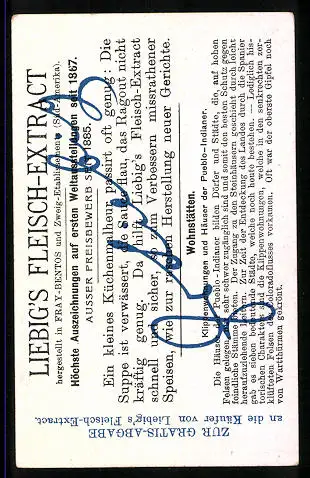 LIEBIG'S FLEISCH-EXTRACT
hergestellt in FRAY-BENTOS und Zweig-Etablissements (Süd-Amerika).
Höchste Auszeichnungen auf ersten Weltausstellungen seit 1867.
AUSSER PREISBEWERB SEIT 1885.
Ein kleines Küchenmalheur passirt oft genug: Die
Suppe ist verwässert, die Sauce flau, das Ragout nicht
kräftig genug. Da hilft Liebig's Fleisch-Extract
schnell und sicher, wie zum Verbessern missrathener
Speisen, wie zur raschen Herstellung neuer Gerichte.
Wohnstätten.
Klippenwohnungen und Häuser der Pueblo-Indianer.
Die Häuser der Pueblo-Indianer bilden Dörfer und Städte, die, auf hohen
Felsen gelegen, sehr schwer zugänglich sind und somit den besten Schutz gegen
feindliche Stämme bieten. Der Zugang zu den Steinhäusern geschieht durch leicht
heraufzuziehende Leitern. Zur Zeit der Entdeckung des Landes durch die Spanier
gab es sieben bedeutende Städte, welche noch heute bestehen. Lediglich his-
torischen Charakter sind die Klippenwohnungen, welche in den senkrechten zer-
klüfteten Felsen des Coloradoflusses vorkamen. Oft war der oberste Gipfel noch
von Wartthürmen gekrönt.
ZUR GRATIS-ABGABE
an die Käufer von Liebig's Fleisch-Extract.